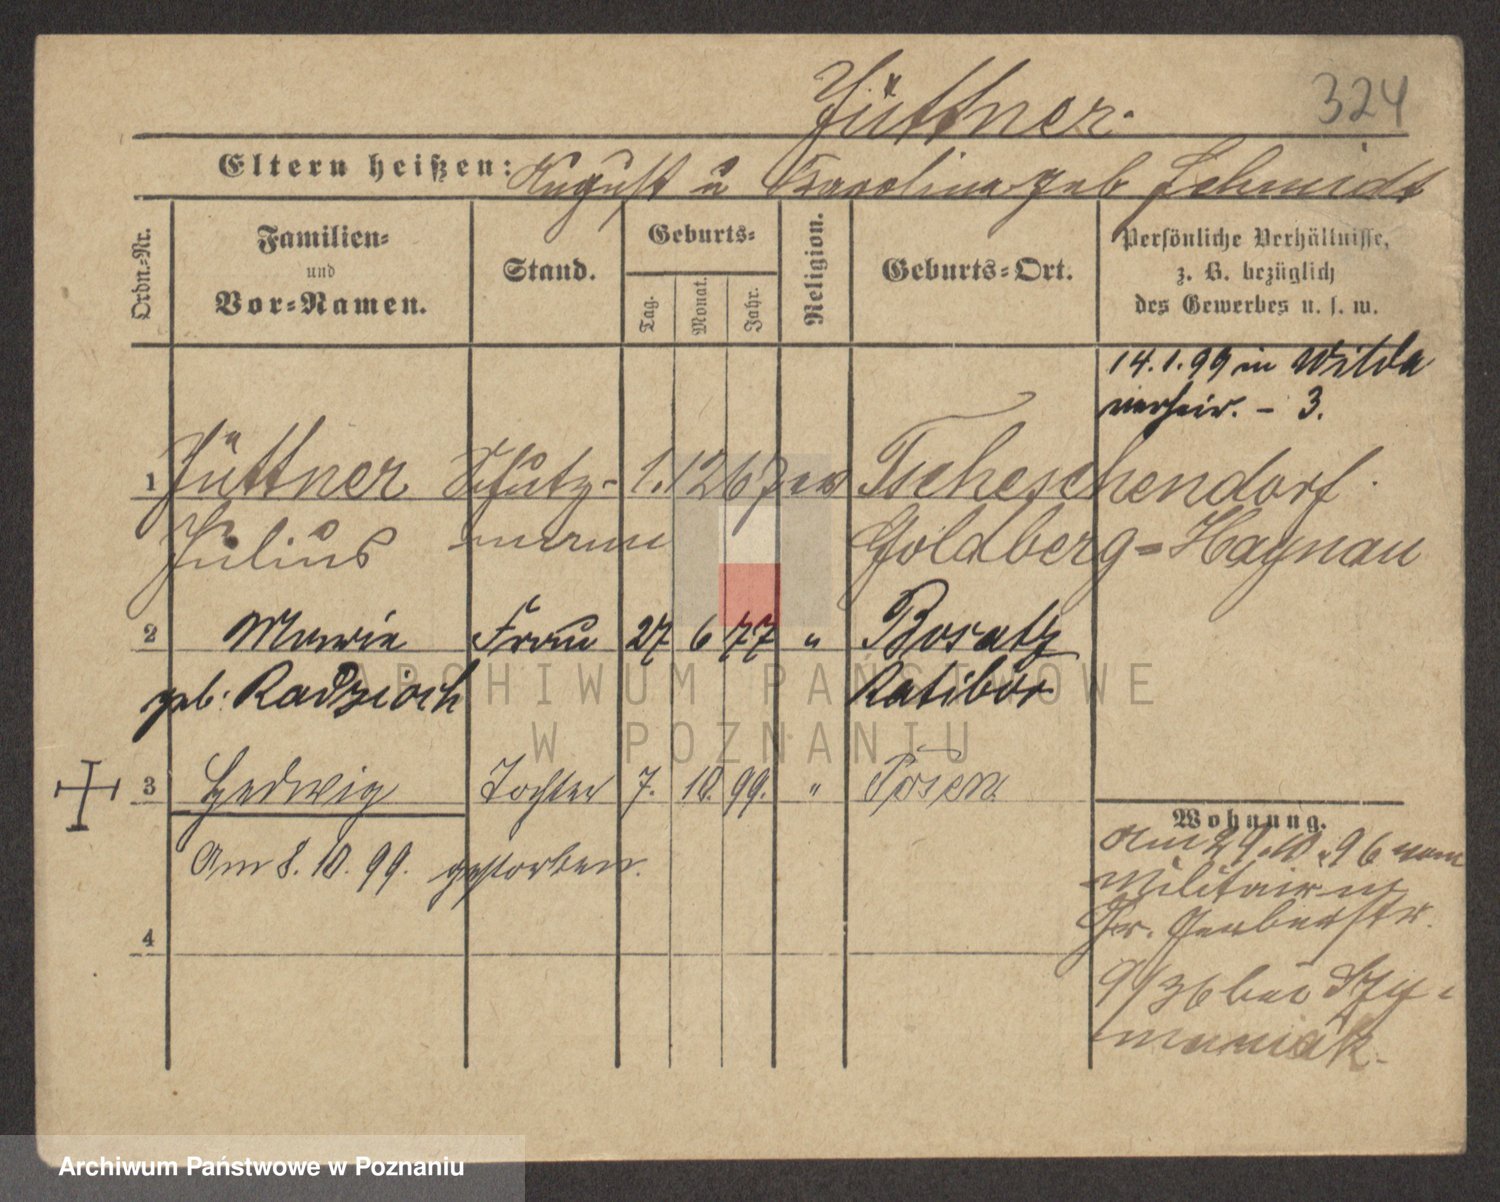 324
Jüttner.
Eltern heißen: August u Karolina geb Schmidt
Ordn.-Nr.
Familien-
und
Vor-Namen.
Stand.
Geburts-
Tag.
Monat.
Jahr.
Religion.
Geburts-Ort.
Persönliche Verhältnisse,
z. B. bezüglich
des Gewerbes u. s. w.
14.1.99 in Wilda
verheir. - 3.
1 Jüttner Schutz- 1. 12 67 ev Tscheschendorf
Julius mann Goldberg=Haynau
2 Marie Frau 27 6 77 " Bosatz
geb. Radzioch Ratibor
3 Hedwig Tochter 7. 10. 99. " Posen
Am 8. 10. 99. gestorben.
4
Wohnung.
Am 29.10.96 vom
Militair in
Gr. Gerberstr.
9/36 bei Szy-
maniak.
ARCHIWUM PAŃSTWOWE
W POZNANIU
Archiwum Państwowe w Poznaniu